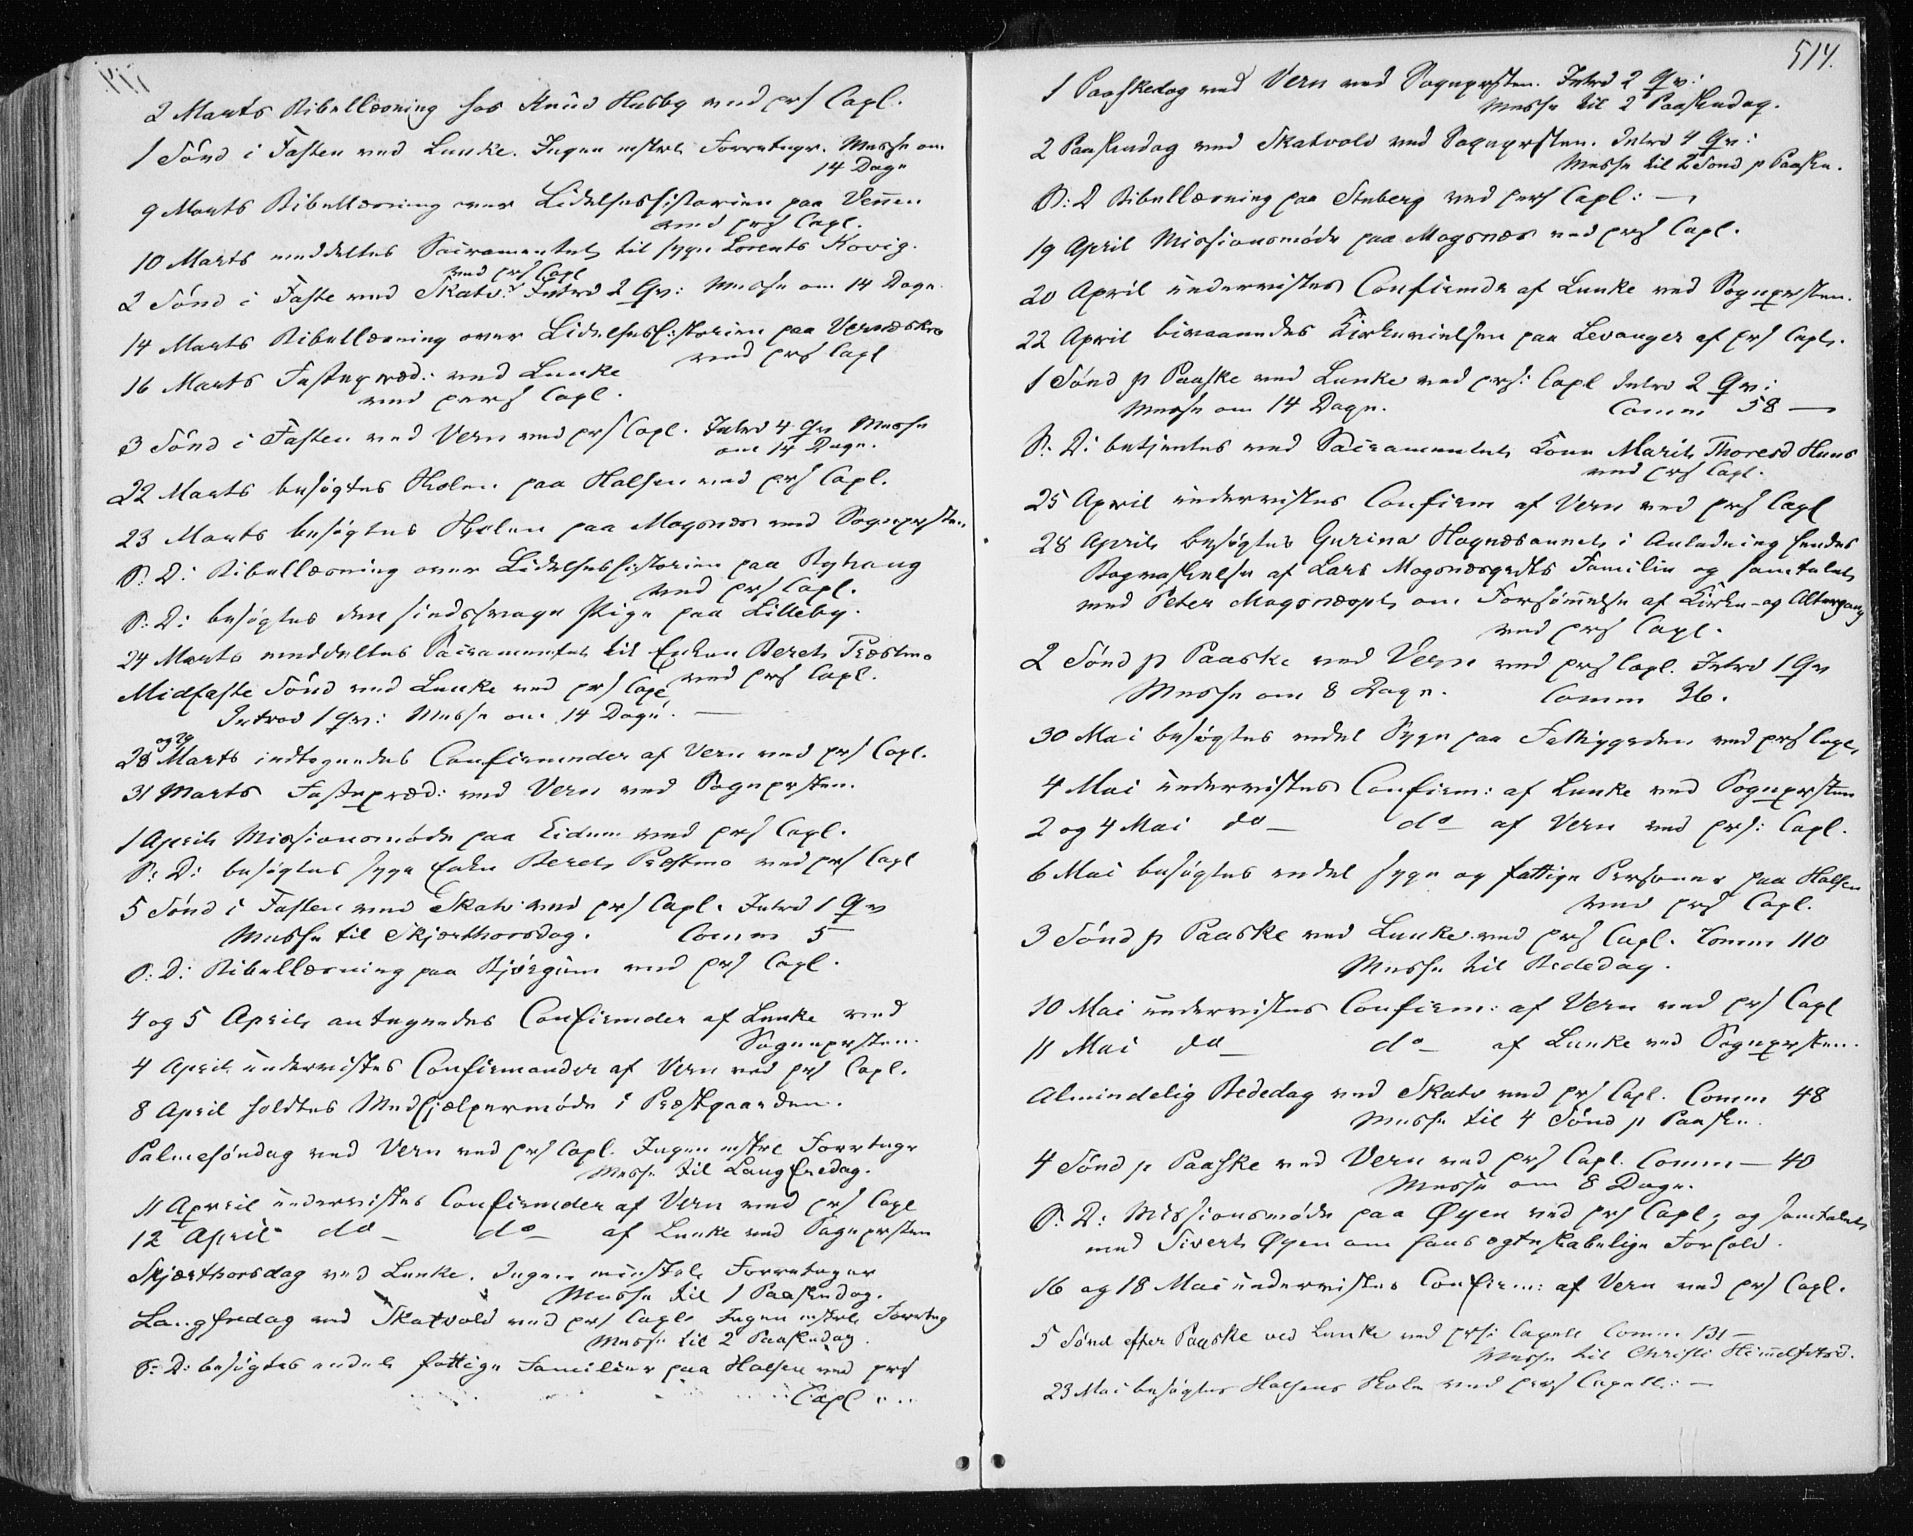 2 Marts Bibellæsning hos Knud Husby ved prs Capl.
1 Sønd i Fasten ved Lánke. Ingen mstrl Forretngr. Messe om
14 Dage
9 Marts Bibellæsning over Lidelseshistorien paa Vennen
ved prs Capl.
10 Marts meddeltes Sacramentet til syge Lorents Kovig.
ved prs Capl
2 Sønd i Faste ved Skatv: Introd 2 Qv: Messe om 14 Dage
14 Marts Bibellæsning over Lidelseshistorien paa Værneskro
ved prs Capl
16 Marts Fastepræd: ved Lánke
ved pers Capl.
3 Sønd i Fasten ved Vern ved prs Capl. Introd 4 Qv Messe
om 14 Dage.
22 Marts besøgtes Skolen paa Halsen ved prs Capl.
23 Marts besøgtes Skolen paa Mogsnæs ved Sognprsten
S: D: Bibellæsning over Lidelseshistorien paa Ryhaug
ved prs Capl.
S: D: besøgtes den sindssvage Pige paa Lilleby.
24 Marts meddeltes Sacramentet til Enken Beret Præstmo
ved prs Capl.
Midfaste Sønd ved Lánke ved prs Capl
Introd 1 Qv: Messe om 14 Dage. —
og 29
28 Marts indtegnedes Confirmnder af Vern ved prs Capl.
31 Marts Fastepræd: ved Vern ved Sognprsten.
1 April Missionsmøde paa Eidum ved prs Capl.
S: D: besøgtes syge Enke Beret Præstmo ved prs Capl
5 Sønd i Fasten ved Skatv ved prs Capl. Introd 1 Qv
Messe til Skjærthorsdag. Comm 5
S: D: Bibellæsning paa Bjørgum ved prs Capl.
4 og 5 April antegnedes Confirmder af Lánke ved
Sogneprsten.
4 April undervistes Confirmander af Vern ved prs Capl.
8 April holdtes Medhjælpermøde i Præstgaarden.
Palmesøndag ved Vern ved prs Capl. Ingen mstrl Forrtngr
Messe til Langfredag.
11 April undervistes Confirmder af Vern ved prs Capl
12 April do — do — af Lánke ved Sogneprsten
Skjærthorsdag ved Lánke. Ingen minstrle Forretnger
Messe til 1 Paaskedag.
Langfredag ved Skatvold ved prs Capl. Ingen mstrle Forretng
Messe til 2 Paaskedag.
S: D: besøgtes endel fattige Familier paa Halsen ved prs
Capl
514.
1 Paaskedag ved Vern ved Sognprsten. Introd 2 Qv:
Messe til 2 Paaskedag.
2 Paaskedag ved Skatvold ved Sognprsten. Introd 4 Qv:
Messe til 2 Sønd p Paaske.
S: D Bibellæsning paa Stuberg ved pers Capl: —
19 April Missionsmøde paa Mogsnæs ved prs Capl.
20 April undervistes Confirmdr af Lánke ved Sognprsten.
22 April bivaanedes Kirkevielsen paa Levanger af prs Capl.
1 Sønd p Paaske ved Lánke ved prs: Capl Introd 2 Qv:
Messe om 14 Dage. Comm 58 —
S: D: betjentes med Sacramentet Kone Marit Thoresd Huus
ved prs Capl.
25 April undervistes Confirm af Vern ved prs Capl
28 April besøgtes Gurina Hognesaunet i Anledning hendes
Bagvaskelse af Lars Mogsnæsgrdts Familie og samtalet
med Peter Mogsnæspl om Forsømmelse af Kirke- og Altergang
ved prs Capl.
2 Sønd p Paaske ved Vern ved prs Capl. Introd 1 Qv
Messe om 8 Dage. Comm 36.
30 Mai besøgtes endel Syge paa Fattiggrden ved prs Capl,
4 Mai undervistes Confirm: af Lánke ved Sognprsten
2 og 4 Mai do — do — af Vern ved prs: Capl.
6 Mai besøgtes endel syge og fattige Personer paa Halsen
ved prs Capl.
3 Sønd p Paaske ved Lánke ved prs Capl. Comm 110
Messe til Bededag.
10 Mai undervistes Confirm: af Vern ved prs Capl
11 Mai do — do — af Lánke ved Sognprsten.
Almindelig Bededag ved Skatv ved prs Capl. Comm 48
Messe til 4 Sønd p Paaske.
4 Sønd p Paaske ved Vern ved prs Capl. Comm — 40
Messe om 8 Dage.
S: D: Missionsmøde paa Øyen ved prs Capl; og samtalet
med Sivert Øyen om hans ægteskabelige Forhold.
16 og 18 Mai undervistes Confirm: af Vern ved prs Capl.
5 Sønd efter Paaske ved Lánke ved prs: Capell Comm 131 —
Messe til Christi Himmelfrtsd.
23 Mai besøgtes Halsens Skole ved pers Capell: —